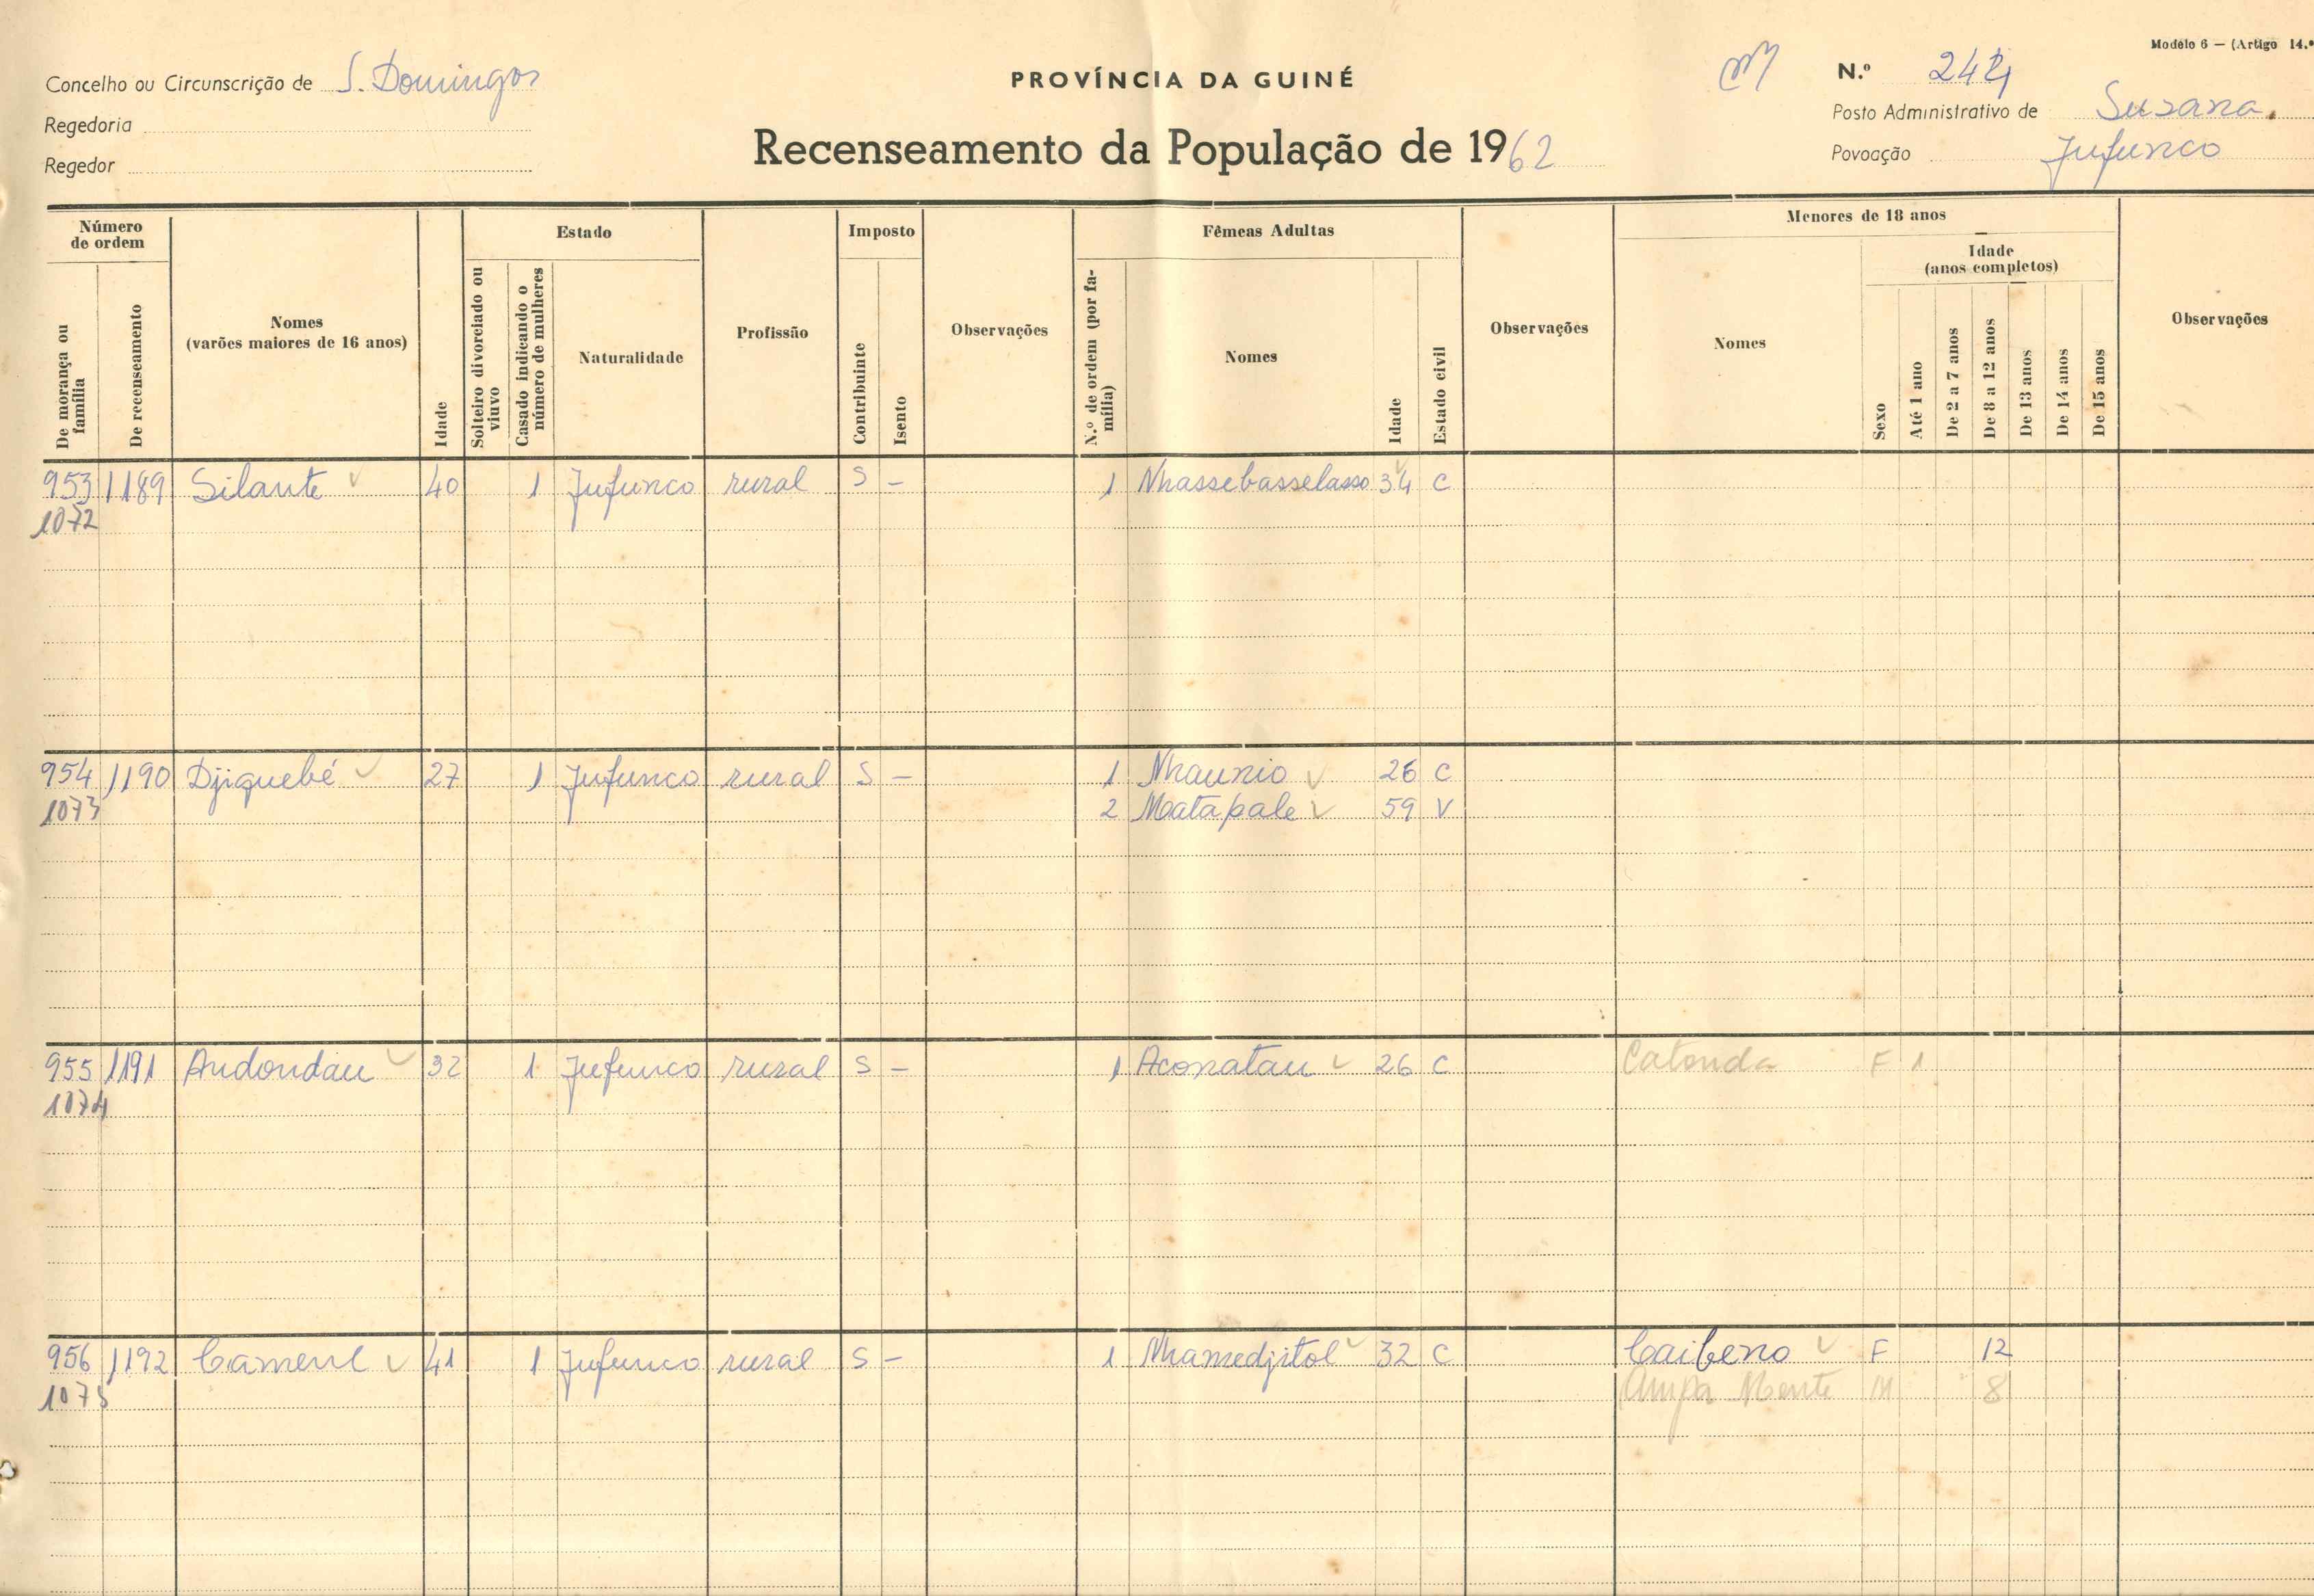 Modelo 6 — (Artigo 14.º
Concelho ou Circunscrição de S. Domingos
PROVÍNCIA DA GUINÉ
N.º
Regedoria
Posto Administrativo de Suzana.
Regedor
Recenseamento da População de 1962
Povoação Jufunco
Número de ordem
De morança ou família
De recenseamento
Nomes
(varões maiores de 16 anos)
Idade
Estado
Solteiro divorciado ou viuvo
Casado indicando o número de mulheres
Naturalidade
Profissão
Imposto
Contribuinte
Isento
Observações
Fêmeas Adultas
N.º de ordem (por família)
Nomes
Idade
Estado civil
Observações
Menores de 18 anos
Nomes
Sexo
Idade
(anos completos)
Até 1 ano
De 2 a 7 anos
De 8 a 12 anos
De 13 anos
De 14 anos
De 15 anos
Observações
953 1189 Silante 40 1 Jufunco rural S — 1 Nhassebasselasso 34 C
1072
954 1190 Djiquebé 27 1 Jufunco rural S — 1 Nhaunio 26 C
1073 2 Matapale 59 V
955 1191 Andondau 32 1 Jufunco rural S — 1 Aconatau 26 C Catonda F 1
1074
956 1192 41 1 Jufunco rural S — 1 Nhamedjitol 32 C Caibeno F 12
1075 Ampa Mente M 8